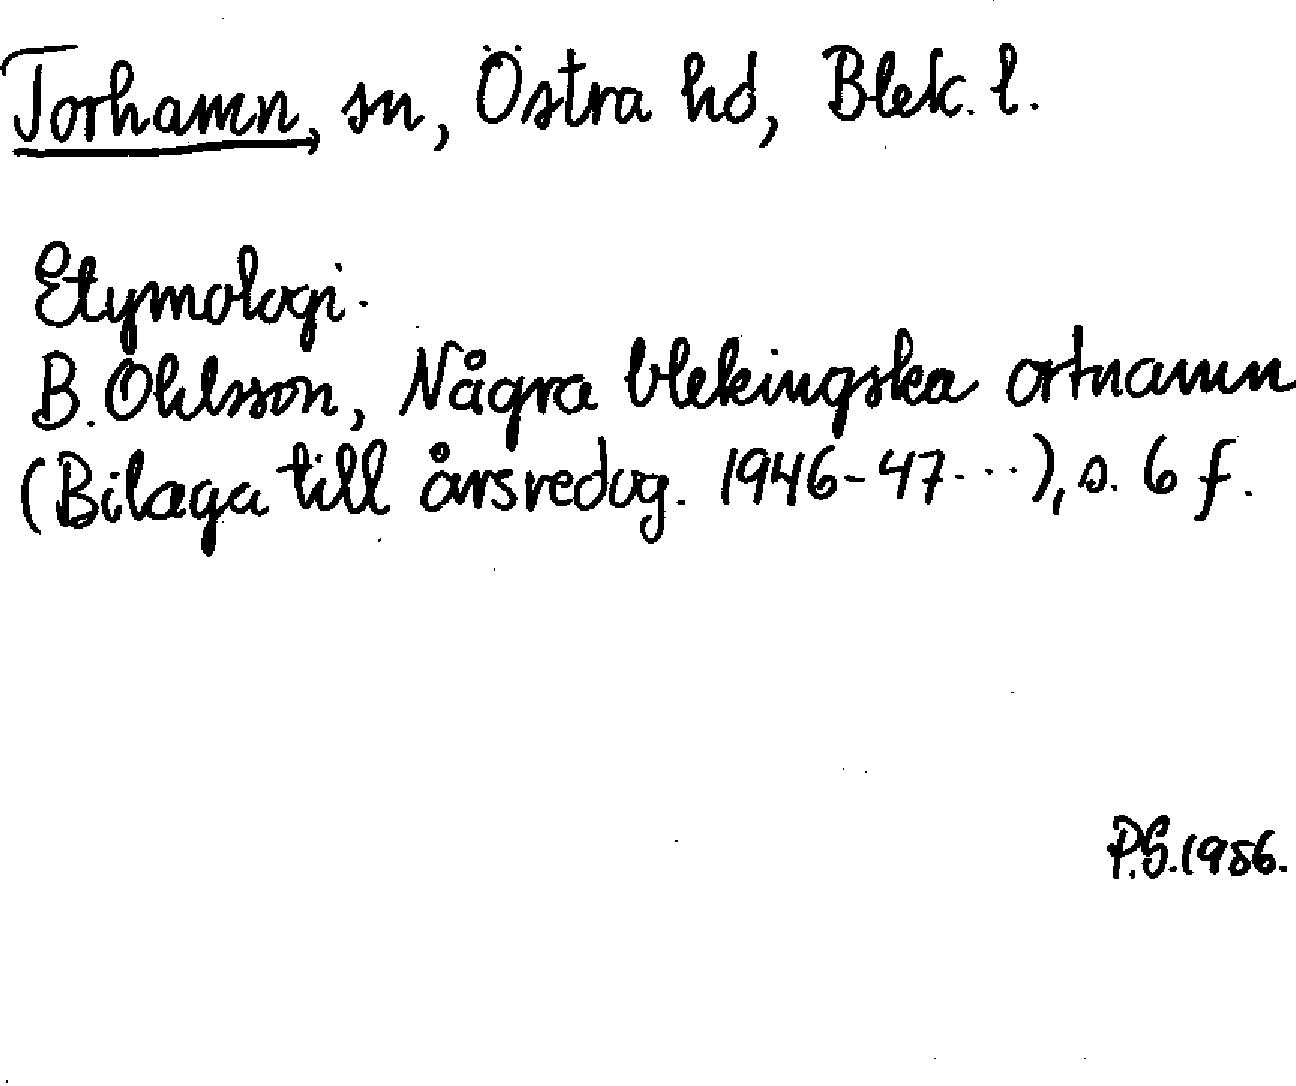 Torhamn, sn, Östra hd, Blek. l.
Etymologi.
B. Ohlsson, Några blekingska ortnamn
(Bilaga till årsredog. 1946-47...), s. 6 f.
P.S. 1956.